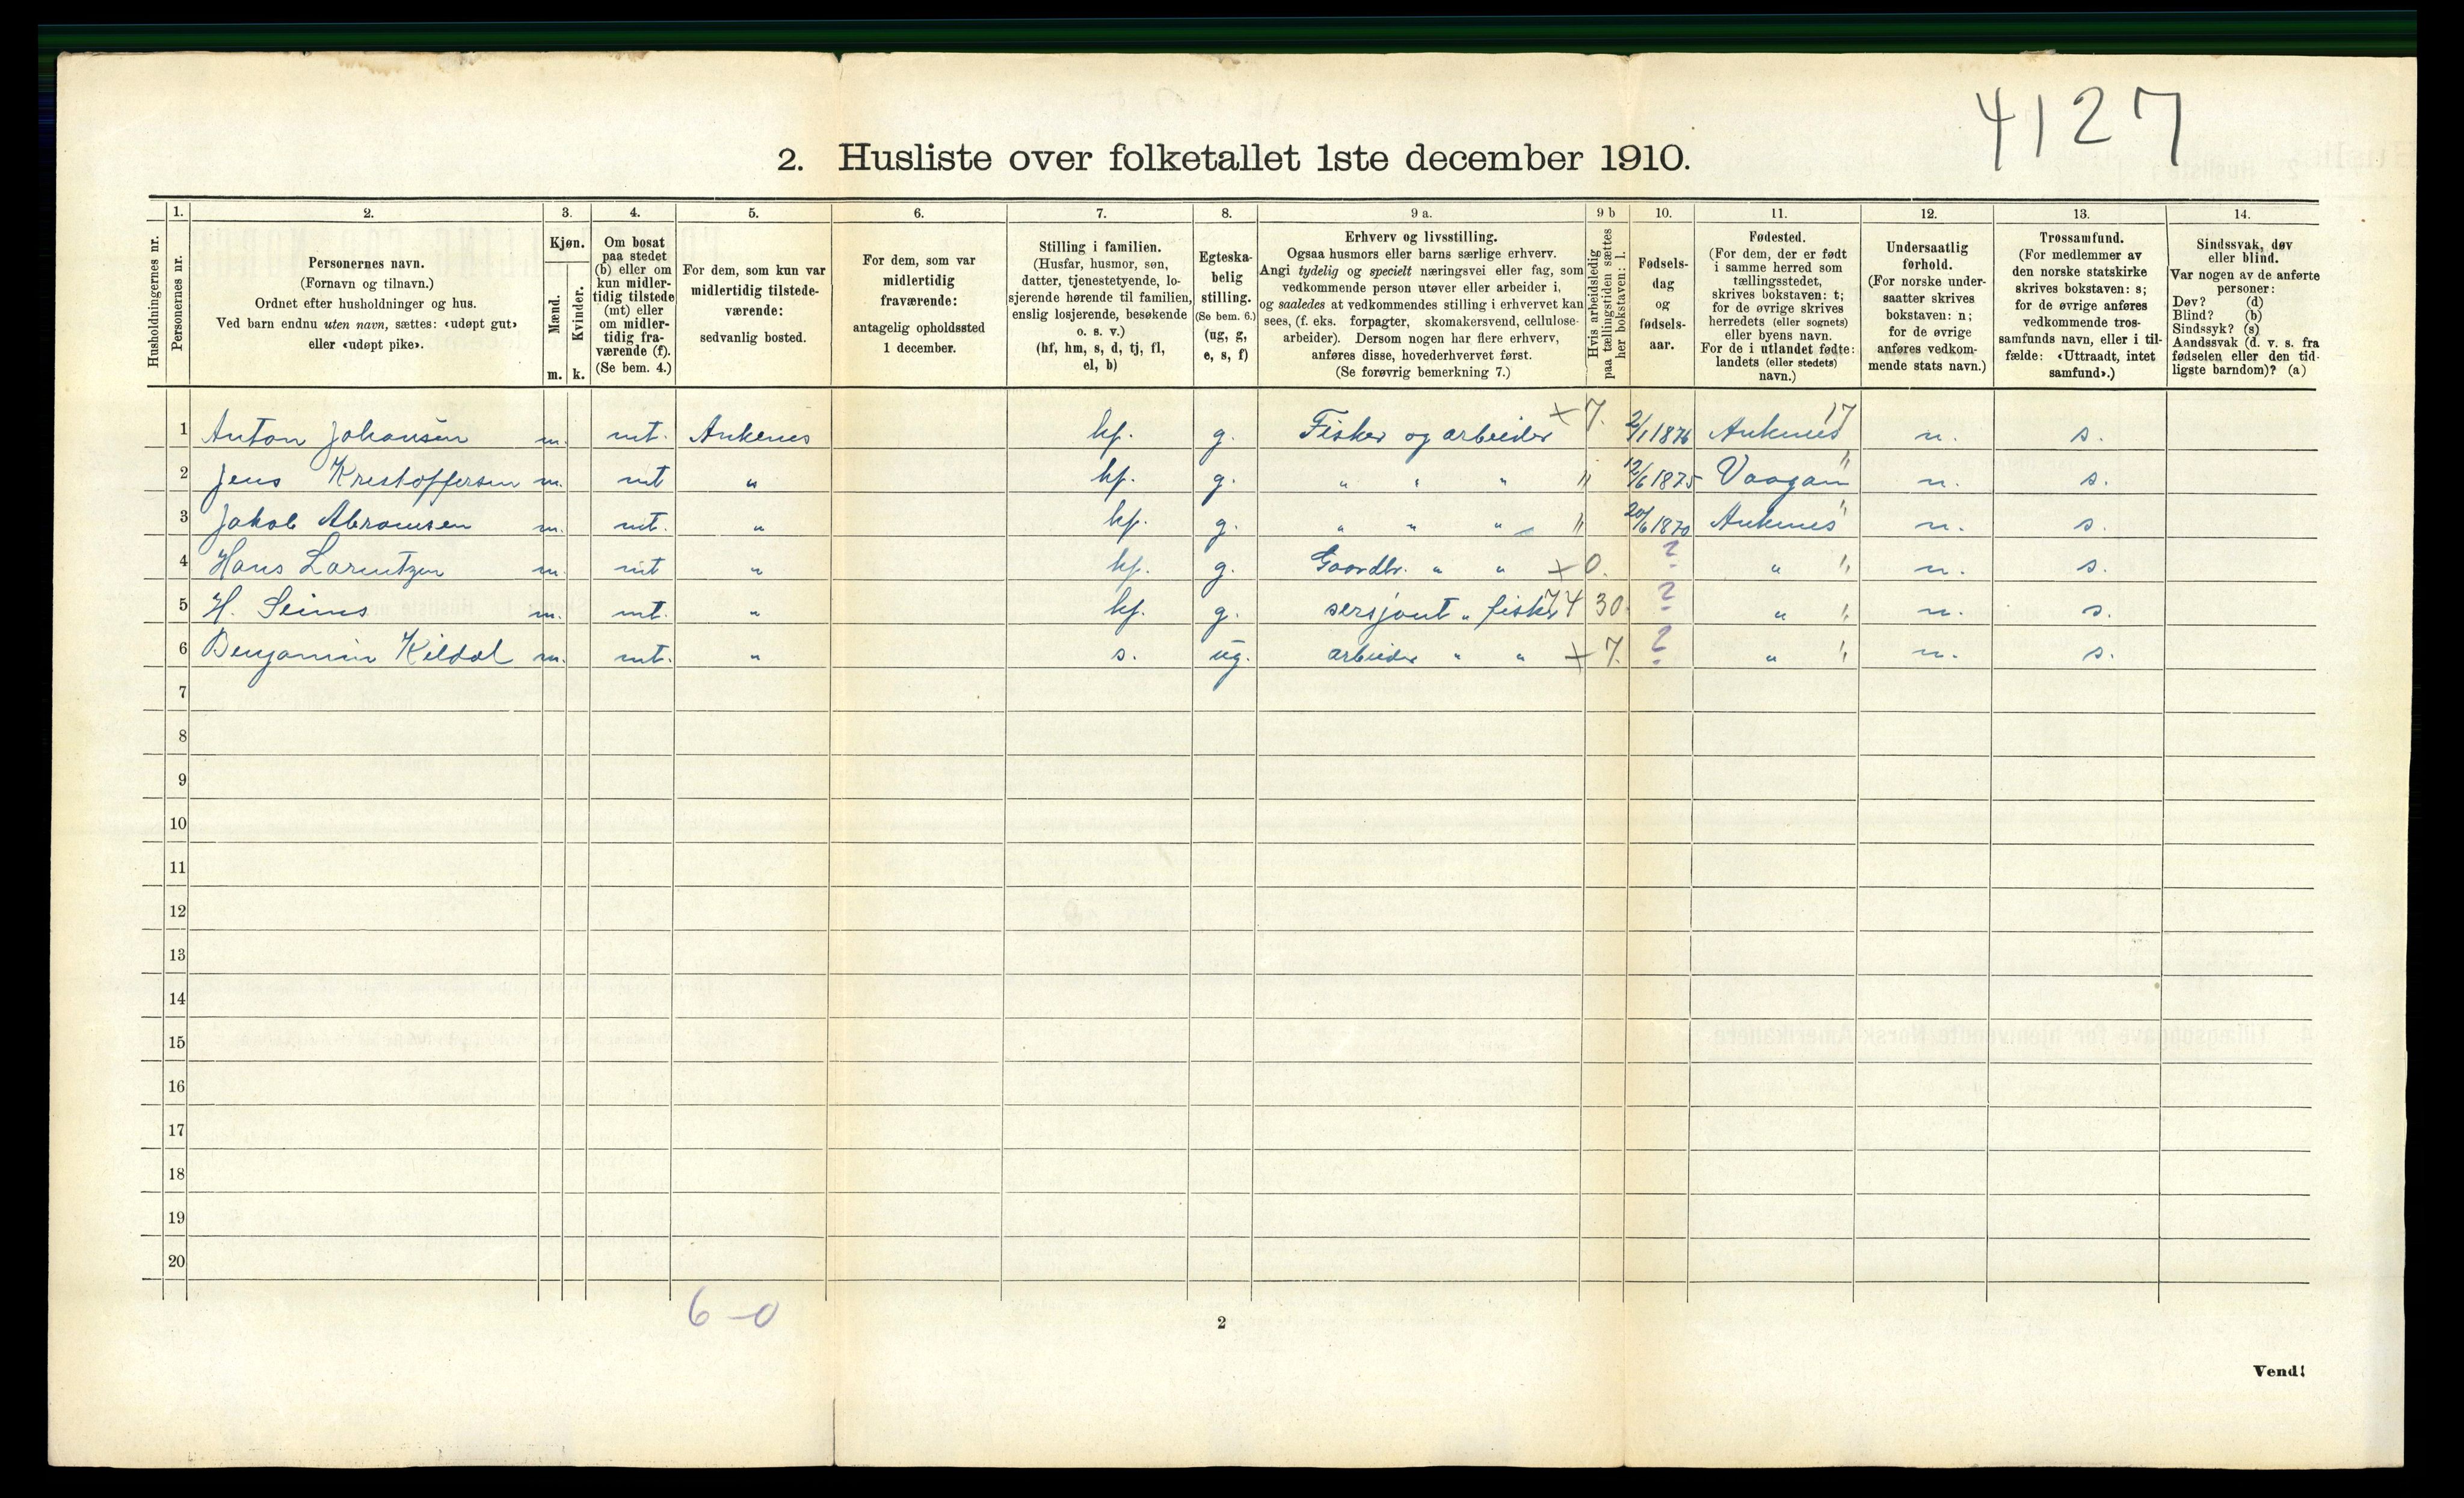 4127
2. Husliste over folketallet 1ste december 1910.
Husholdningernes nr.
1. Personernes nr.
2. Personernes navn.
(Fornavn og tilnavn.)
Ordnet efter husholdninger og hus.
Ved barn endnu uten navn, sættes: «udøpt gut»
eller «udøpt pike».
3. Kjøn.
Mænd. Kvinder.
m. k.
4. Om bosat
paa stedet
(b) eller om
kun midler-
tidig tilstede
(mt) eller
om midler-
tidig fra-
værende (f).
(Se bem. 4.)
5. For dem, som kun var
midlertidig tilstede-
værende:
sedvanlig bosted.
6. For dem, som var
midlertidig
fraværende:
antagelig opholdssted
1 december.
7. Stilling i familien.
(Husfar, husmor, søn,
datter, tjenestetyende, lo-
sjerende hørende til familien,
enslig losjerende, besøkende
o. s. v.)
(hf, hm, s, d, tj, fl,
el, b)
8. Egteska-
belig
stilling.
(Se bem. 6.)
(ug, g,
e, s, f)
9 a. Erhverv og livsstilling.
Ogsaa husmors eller barns særlige erhverv.
Angi tydelig og specielt næringsvei eller fag, som
vedkommende person utøver eller arbeider i,
og saaledes at vedkommendes stilling i erhvervet kan
sees, (f. eks. forpagter, skomakersvend, cellulose-
arbeider). Dersom nogen har flere erhverv,
anføres disse, hovederhvervet først.
(Se forøvrig bemerkning 7.)
9 b Hvis arbeidsledig
paa tællingstiden sættes
her bokstaven: l.
10. Fødsels-
dag
og
fødsels-
aar.
11. Fødested.
(For dem, der er født
i samme herred som
tællingsstedet,
skrives bokstaven: t;
for de øvrige skrives
herredets (eller sognets)
eller byens navn.
For de i utlandet fødte:
landets (eller stedets)
navn.)
12. Undersaatlig
forhold.
(For norske under-
saatter skrives
bokstaven: n;
for de øvrige
anføres vedkom-
mende stats navn.)
13. Trossamfund.
(For medlemmer av
den norske statskirke
skrives bokstaven: s;
for de øvrige anføres
vedkommende tros-
samfunds navn, eller i til-
fælde: «Uttraadt, intet
samfund».)
14. Sindssvak, døv
eller blind.
Var nogen av de anførte
personer:
Døv? (d)
Blind? (b)
Sindssyk? (s)
Aandssvak (d. v. s. fra
fødselen eller den tid-
ligste barndom)? (a)
1 Anton Johansen m. mt. Ankenes hf. g. Fisker og arbeider +7. 2/1 1876 Ankenes 17 n. s.
2 Jens Kristoffersen m. mt " hf. g. " " " " 12/6 1875 Vaagan " n. s.
3 Jakob Abramsen m. mt. " hf. g. " " " " 20/6 1870 Ankenes " n. s.
4 Hans Larentzen m. mt " hf. g. Gaardbr. " " +0. ? " " n. s.
5 H. Seines m. mt. " hf. g. sersjant " fisker 74 30. ? " " n. s.
6 Benjamin Kildal m. mt. " s. ug. arbeider " " +7. ? " " n. s.
7
8
9
10
11
12
13
14
15
16
17
18
19
20
6-0
2
Vend!